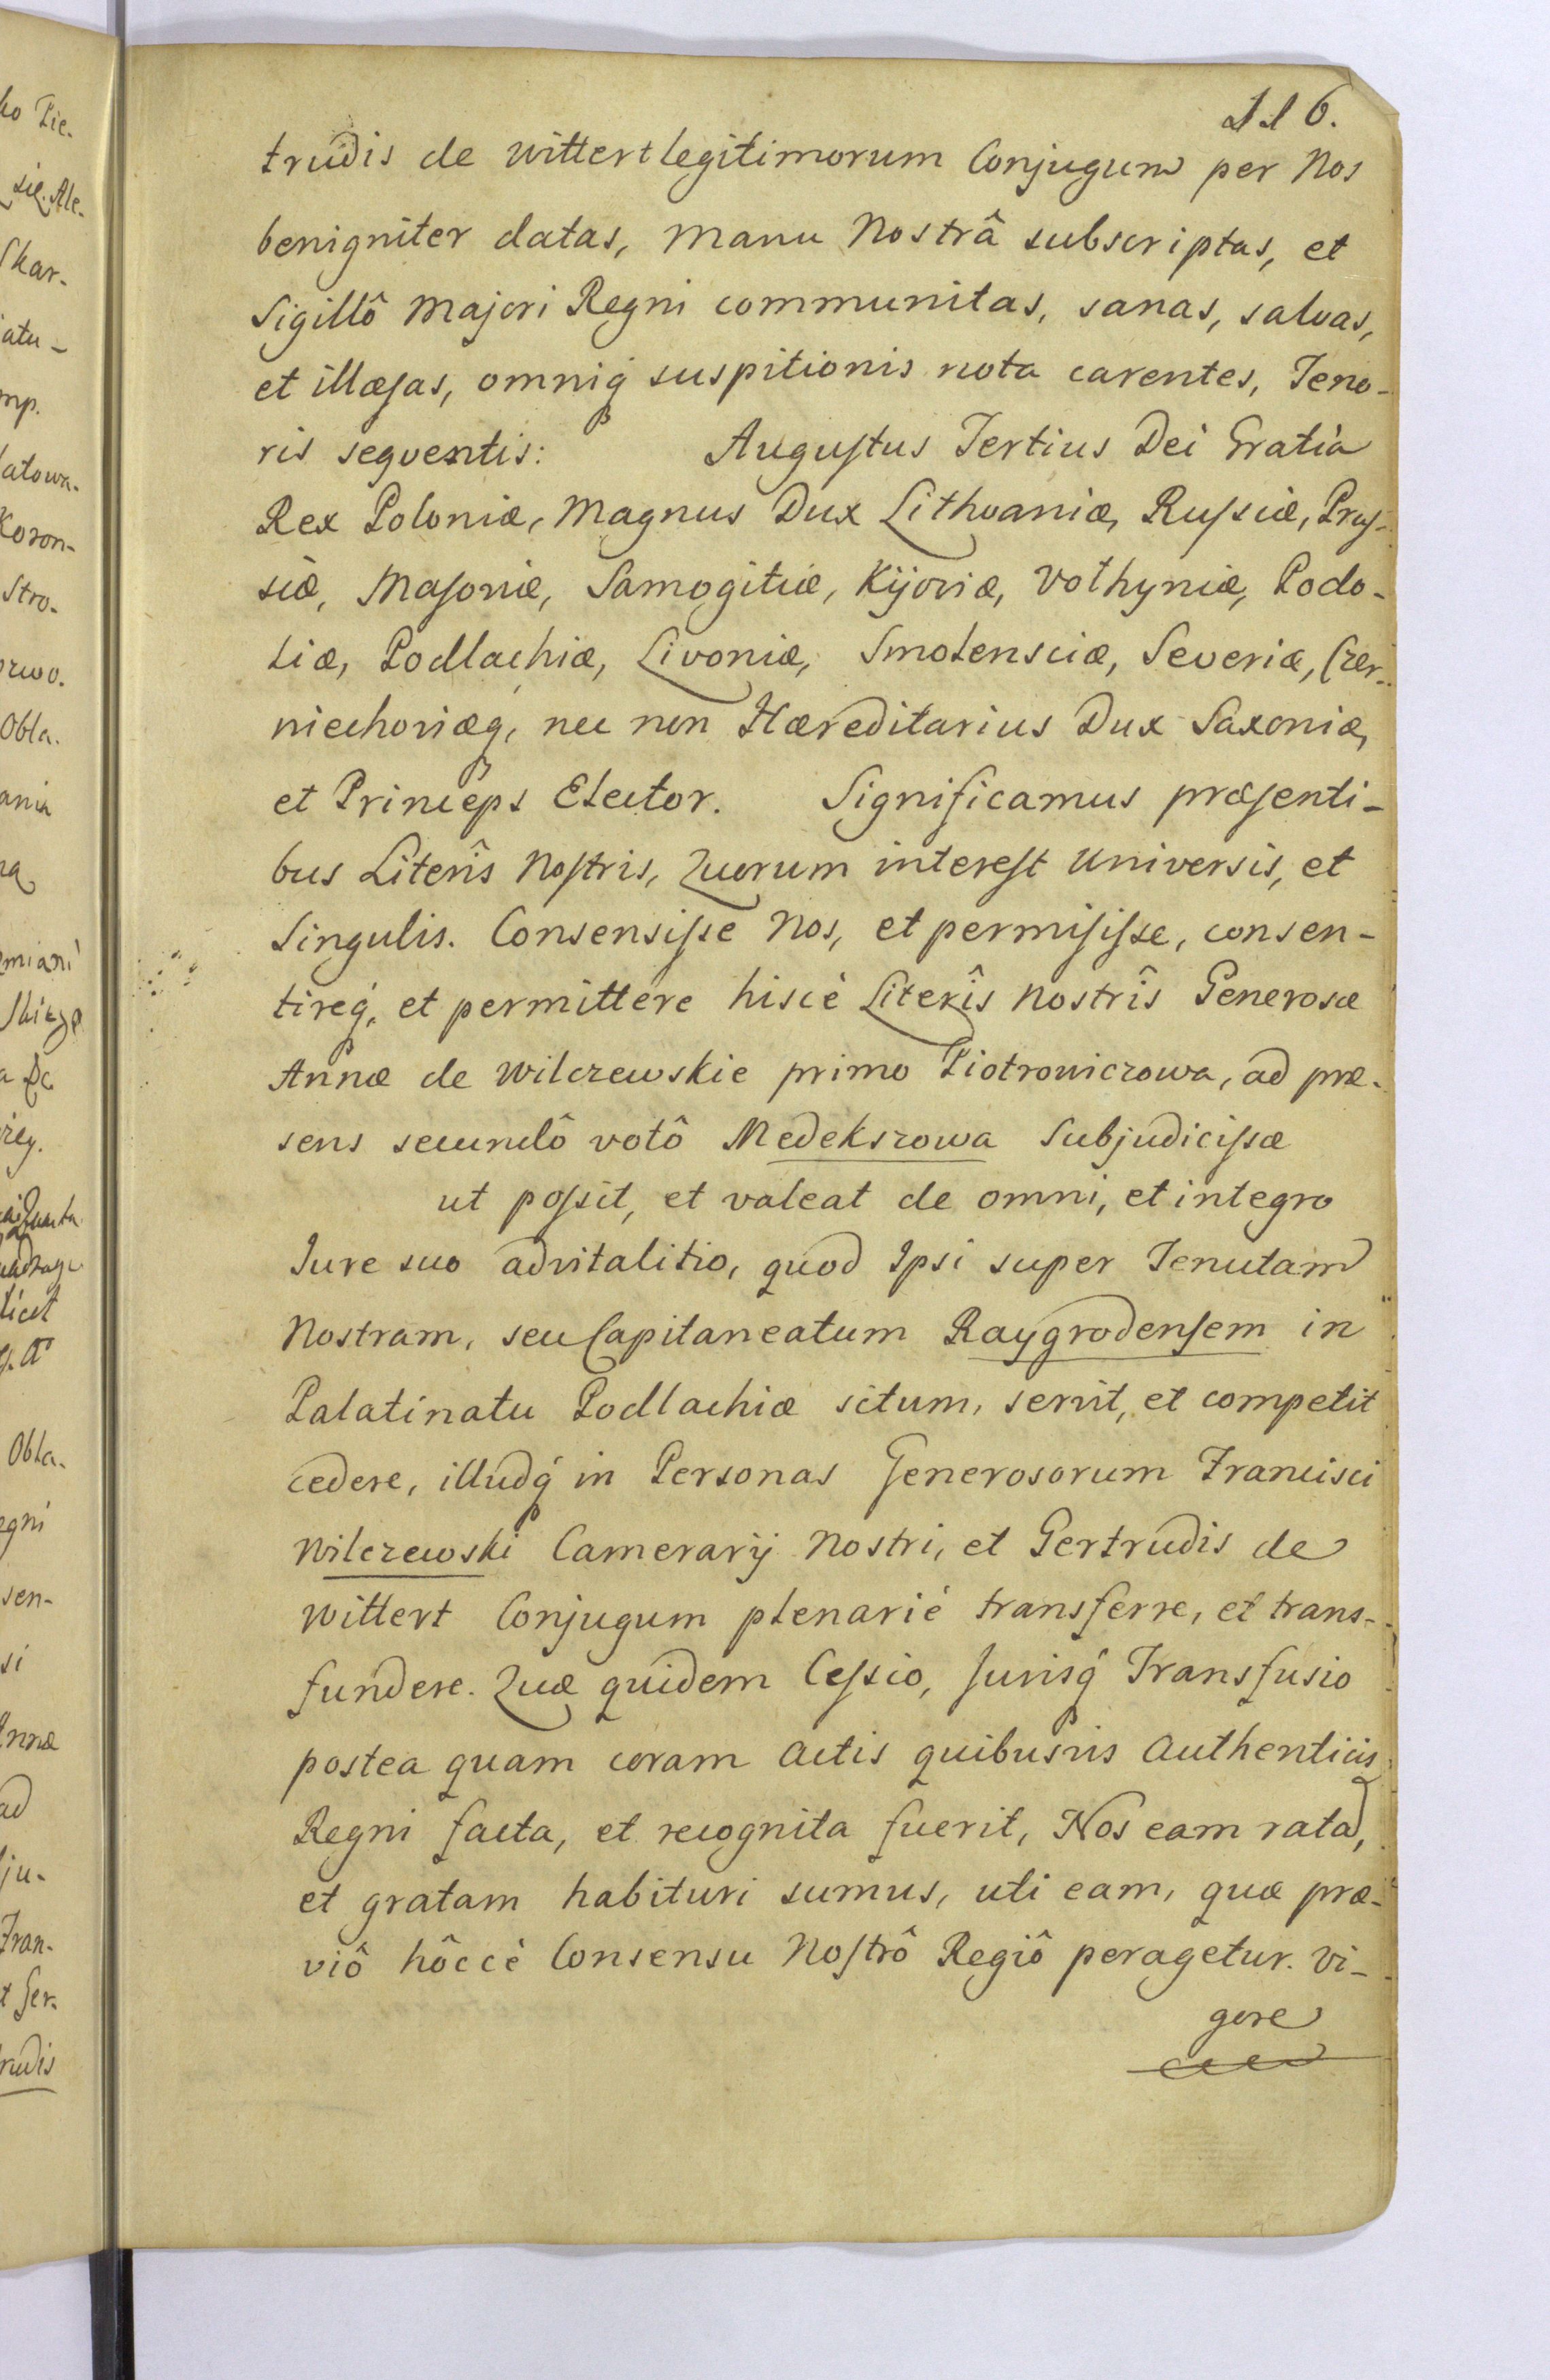 116.
trudis de Wittert legitimorum Conjugum per Nos
benigniter datas, Manu Nostrâ subscriptas, et
Sigillô Majori Regni communitas, sanas, salvas,
et illæsas, omniq́ suspitionis nota carentes, Teno-
ris sequentis: Augustus Tertius Dei Gratia
Rex Poloniæ, Magnus Dux Lithvaniæ, Russiæ, Prus-
siæ, Masoviæ, Samogitiæ, Kijoviæ, Volhyniæ, Podo-
liæ, Podlachiæ, Livoniæ, Smolensciæ, Severiæ, Czer-
niechoviæq, nec non Hæreditarius Dux Saxoniæ,
et Princeps Elector. Significamus præsenti-
bus Literîs Nostris, Quorum interest Universis, et
Singulis. Consensisse Nos, et permisisse, consen-
tireq́, et permittere hiscè Literîs Nostrîs Generosæ
Annæ de Wilczewskie primo Piotrowiczowa, ad præ-
sens secundô votô Medekszowa Subjudicissæ
ut possit, et valeat de omni, et integro
Jure suo advitalitio, quod Ipsi super Tenutam
Nostram, seu Capitaneatum Raygrodensem in
Palatinatu Podlachiæ situm, servit, et competit
cedere, illudq́ in Personas Generosorum Francisci
Wilczewski Camerarij Nostri, et Gertrudis de
Wittert Conjugum plenariè transferre, et trans-
fundere. Quæ quidem Cessio, Jurisq́ Transfusio
postea quam coram Actis quibusvis Authenticis
Regni facta, et recognita fuerit, Nos eam rata,
et gratam habituri sumus, uti eam, quæ præ-
viô hôccè Consensu Nostrô Regiô peragetur. Vi-
gore